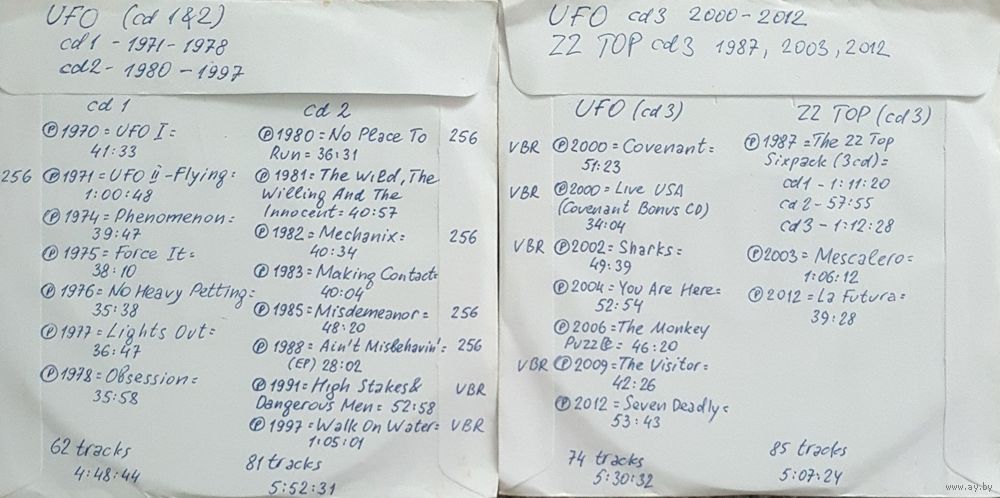 UFO (cd 1&2)
cd1 - 1971 - 1978
cd2 - 1980 - 1997
cd 1
Ⓟ 1970 = UFO I =
41:33
256 Ⓟ 1971 = UFO II - Flying =
1:00:48
Ⓟ 1974 = Phenomenon =
39:47
Ⓟ 1975 = Force It =
38:10
Ⓟ 1976 = No Heavy Petting =
35:38
Ⓟ 1977 = Lights Out =
36:47
Ⓟ 1978 = Obsession =
35:58
62 tracks
4:48:44
cd 2
Ⓟ 1980 = No Place To 256
Run = 36:31
Ⓟ 1981 = The Wild, The
Willing And The
Innocent = 40:57
Ⓟ 1982 = Mechanix = 256
40:34
Ⓟ 1983 = Making Contact =
40:04
Ⓟ 1985 = Misdemeanor = 256
48:20
Ⓟ 1988 = Ain't Misbehavin' = 256
(EP) 28:02
Ⓟ 1991 = High Stakes & VBR
Dangerous Men = 52:58
Ⓟ 1997 = Walk On Water = VBR
1:05:01
81 tracks
5:52:31
UFO cd3 2000 - 2012
ZZ TOP cd3 1987, 2003, 2012
UFO (cd3)
VBR Ⓟ 2000 = Covenant =
51:23
VBR Ⓟ 2000 = Live USA
(Covenant Bonus CD)
34:04
VBR Ⓟ 2002 = Sharks =
49:39
Ⓟ 2004 = You Are Here =
52:54
Ⓟ 2006 = The Monkey
Puzzle = 46:20
VBR Ⓟ 2009 = The Visitor =
42:26
Ⓟ 2012 = Seven Deadly =
53:43
74 tracks
5:30:32
ZZ TOP (cd3)
Ⓟ 1987 = The ZZ Top
Sixpack (3cd) =
cd1 - 1:11:20
cd2 - 57:55
cd3 - 1:12:28
Ⓟ 2003 = Mescalero =
1:06:12
Ⓟ 2012 = La Futura =
39:28
85 tracks
5:07:24
www.ay.by